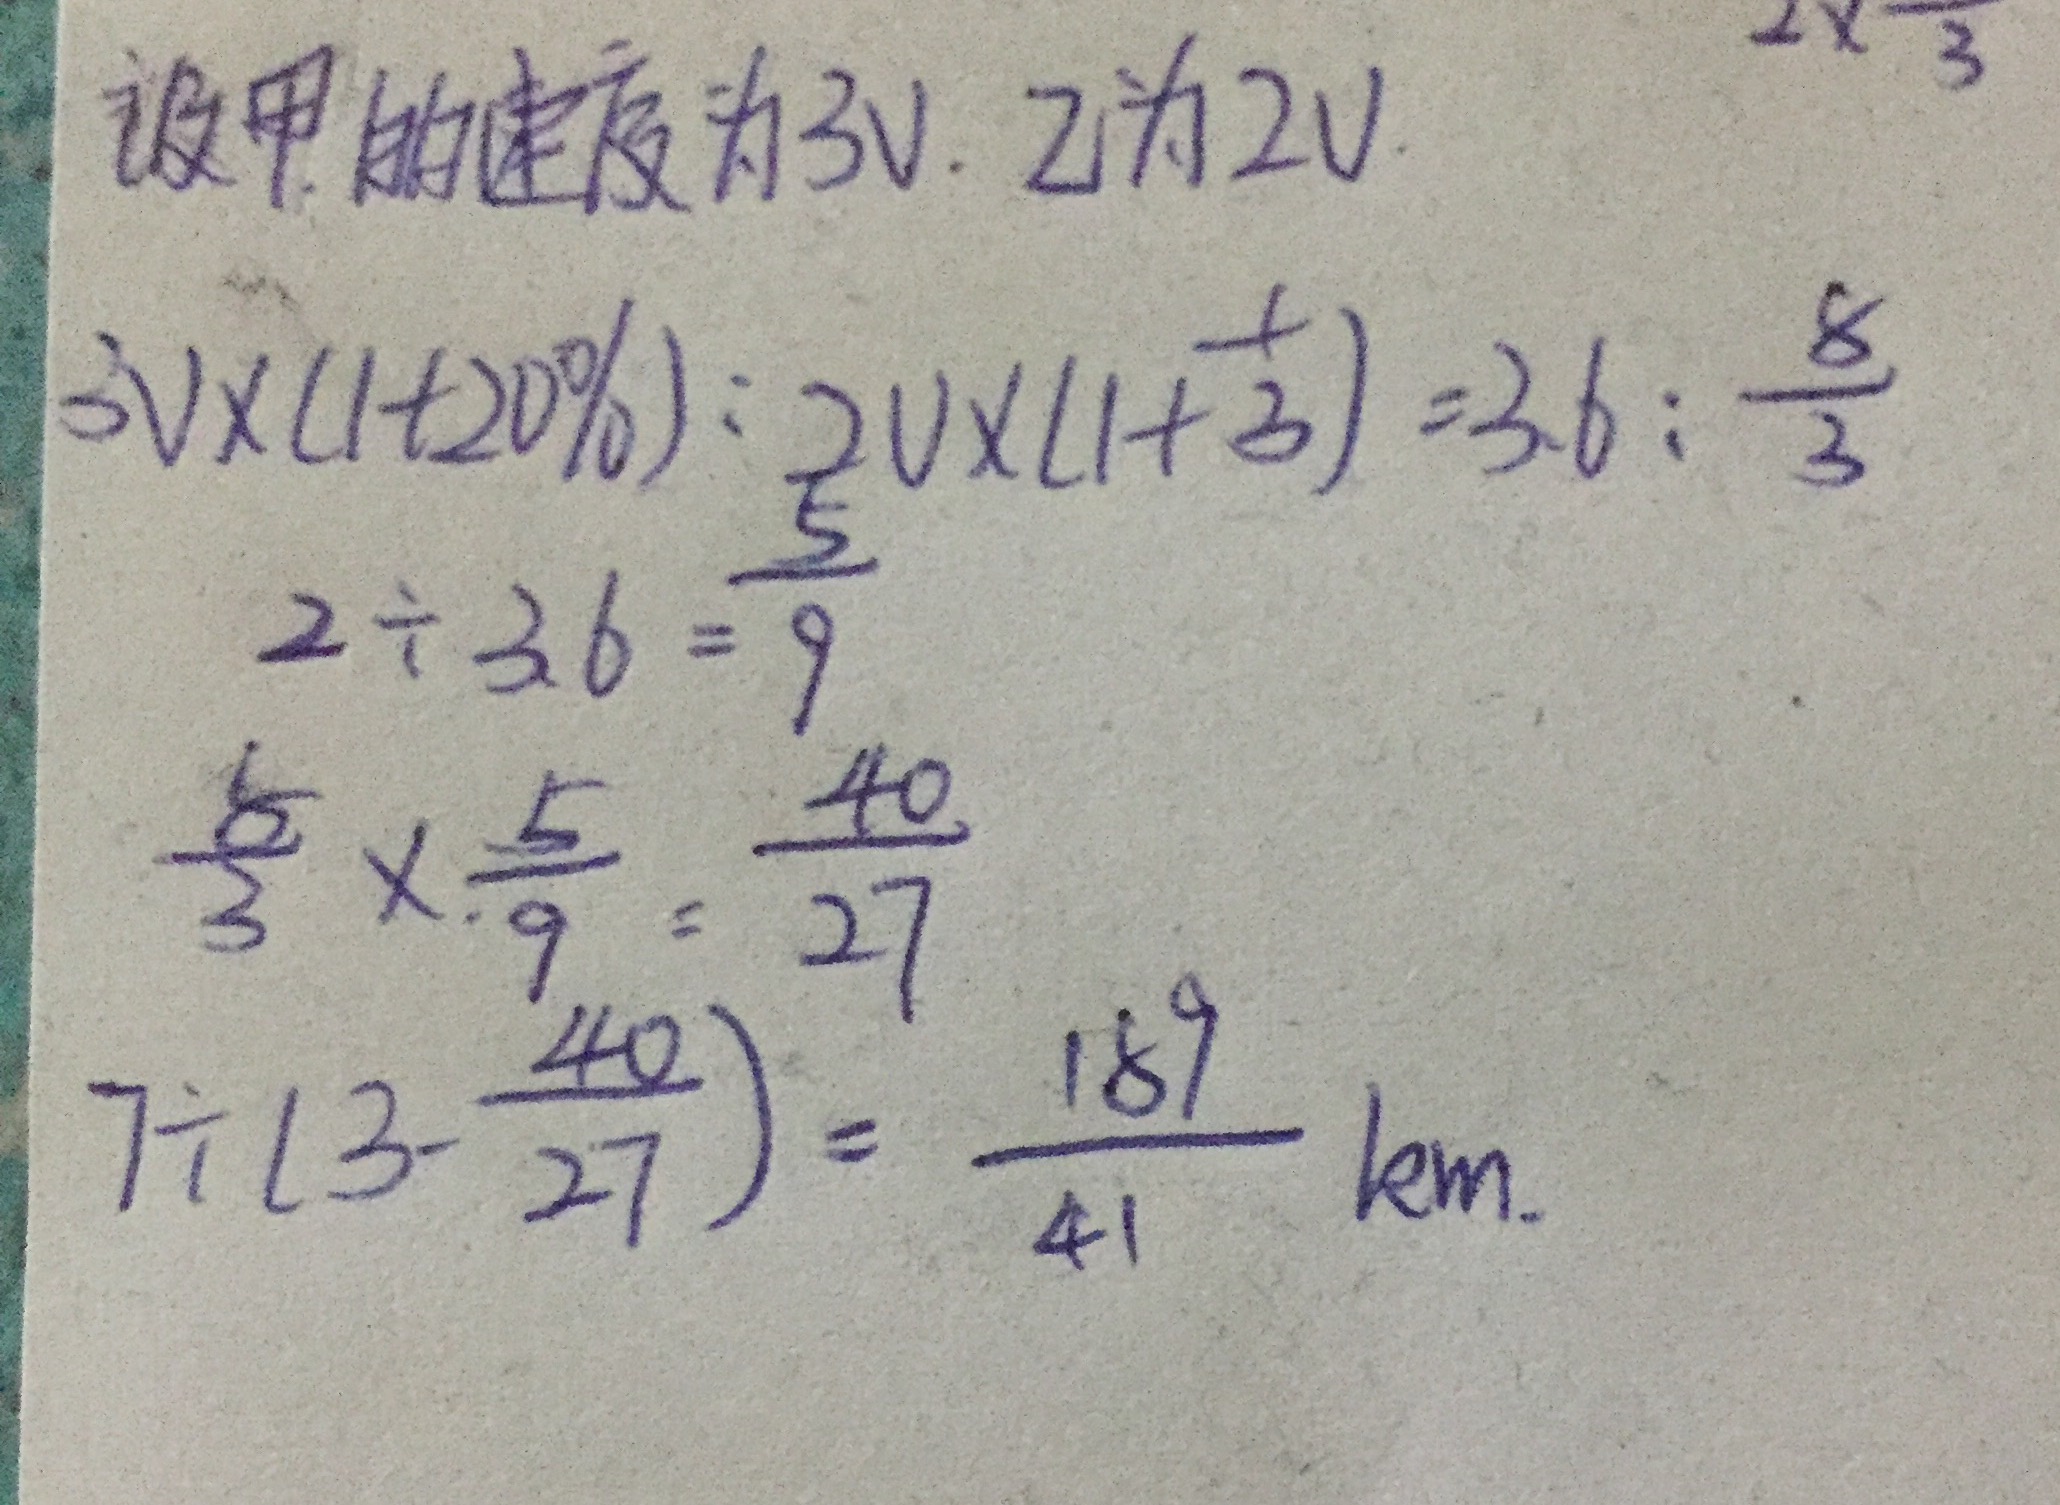 2×—/3
设甲的速度为3V. 乙为2V.
3V×(1+20%):2V×(1+1/3)=3.6:8/3
2÷3.6=5/9
8/3×5/9=40/27
7÷(3-40/27)=189/41 km.